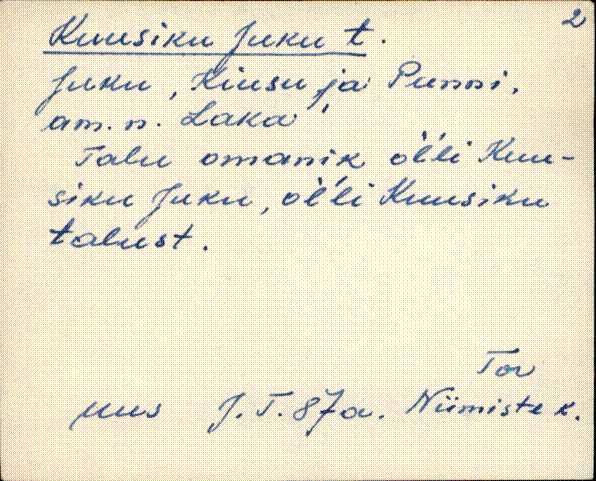 2
Kuusiku Juku t.
Juku, Kiusu ja Punni,
am. n. Laka
Talu omanik ol̀l̀i Kuu-
siku Juku, ol̀l̀i Kuusiku
talust.
Tor
uus J. T. 87a. Niimiste k.